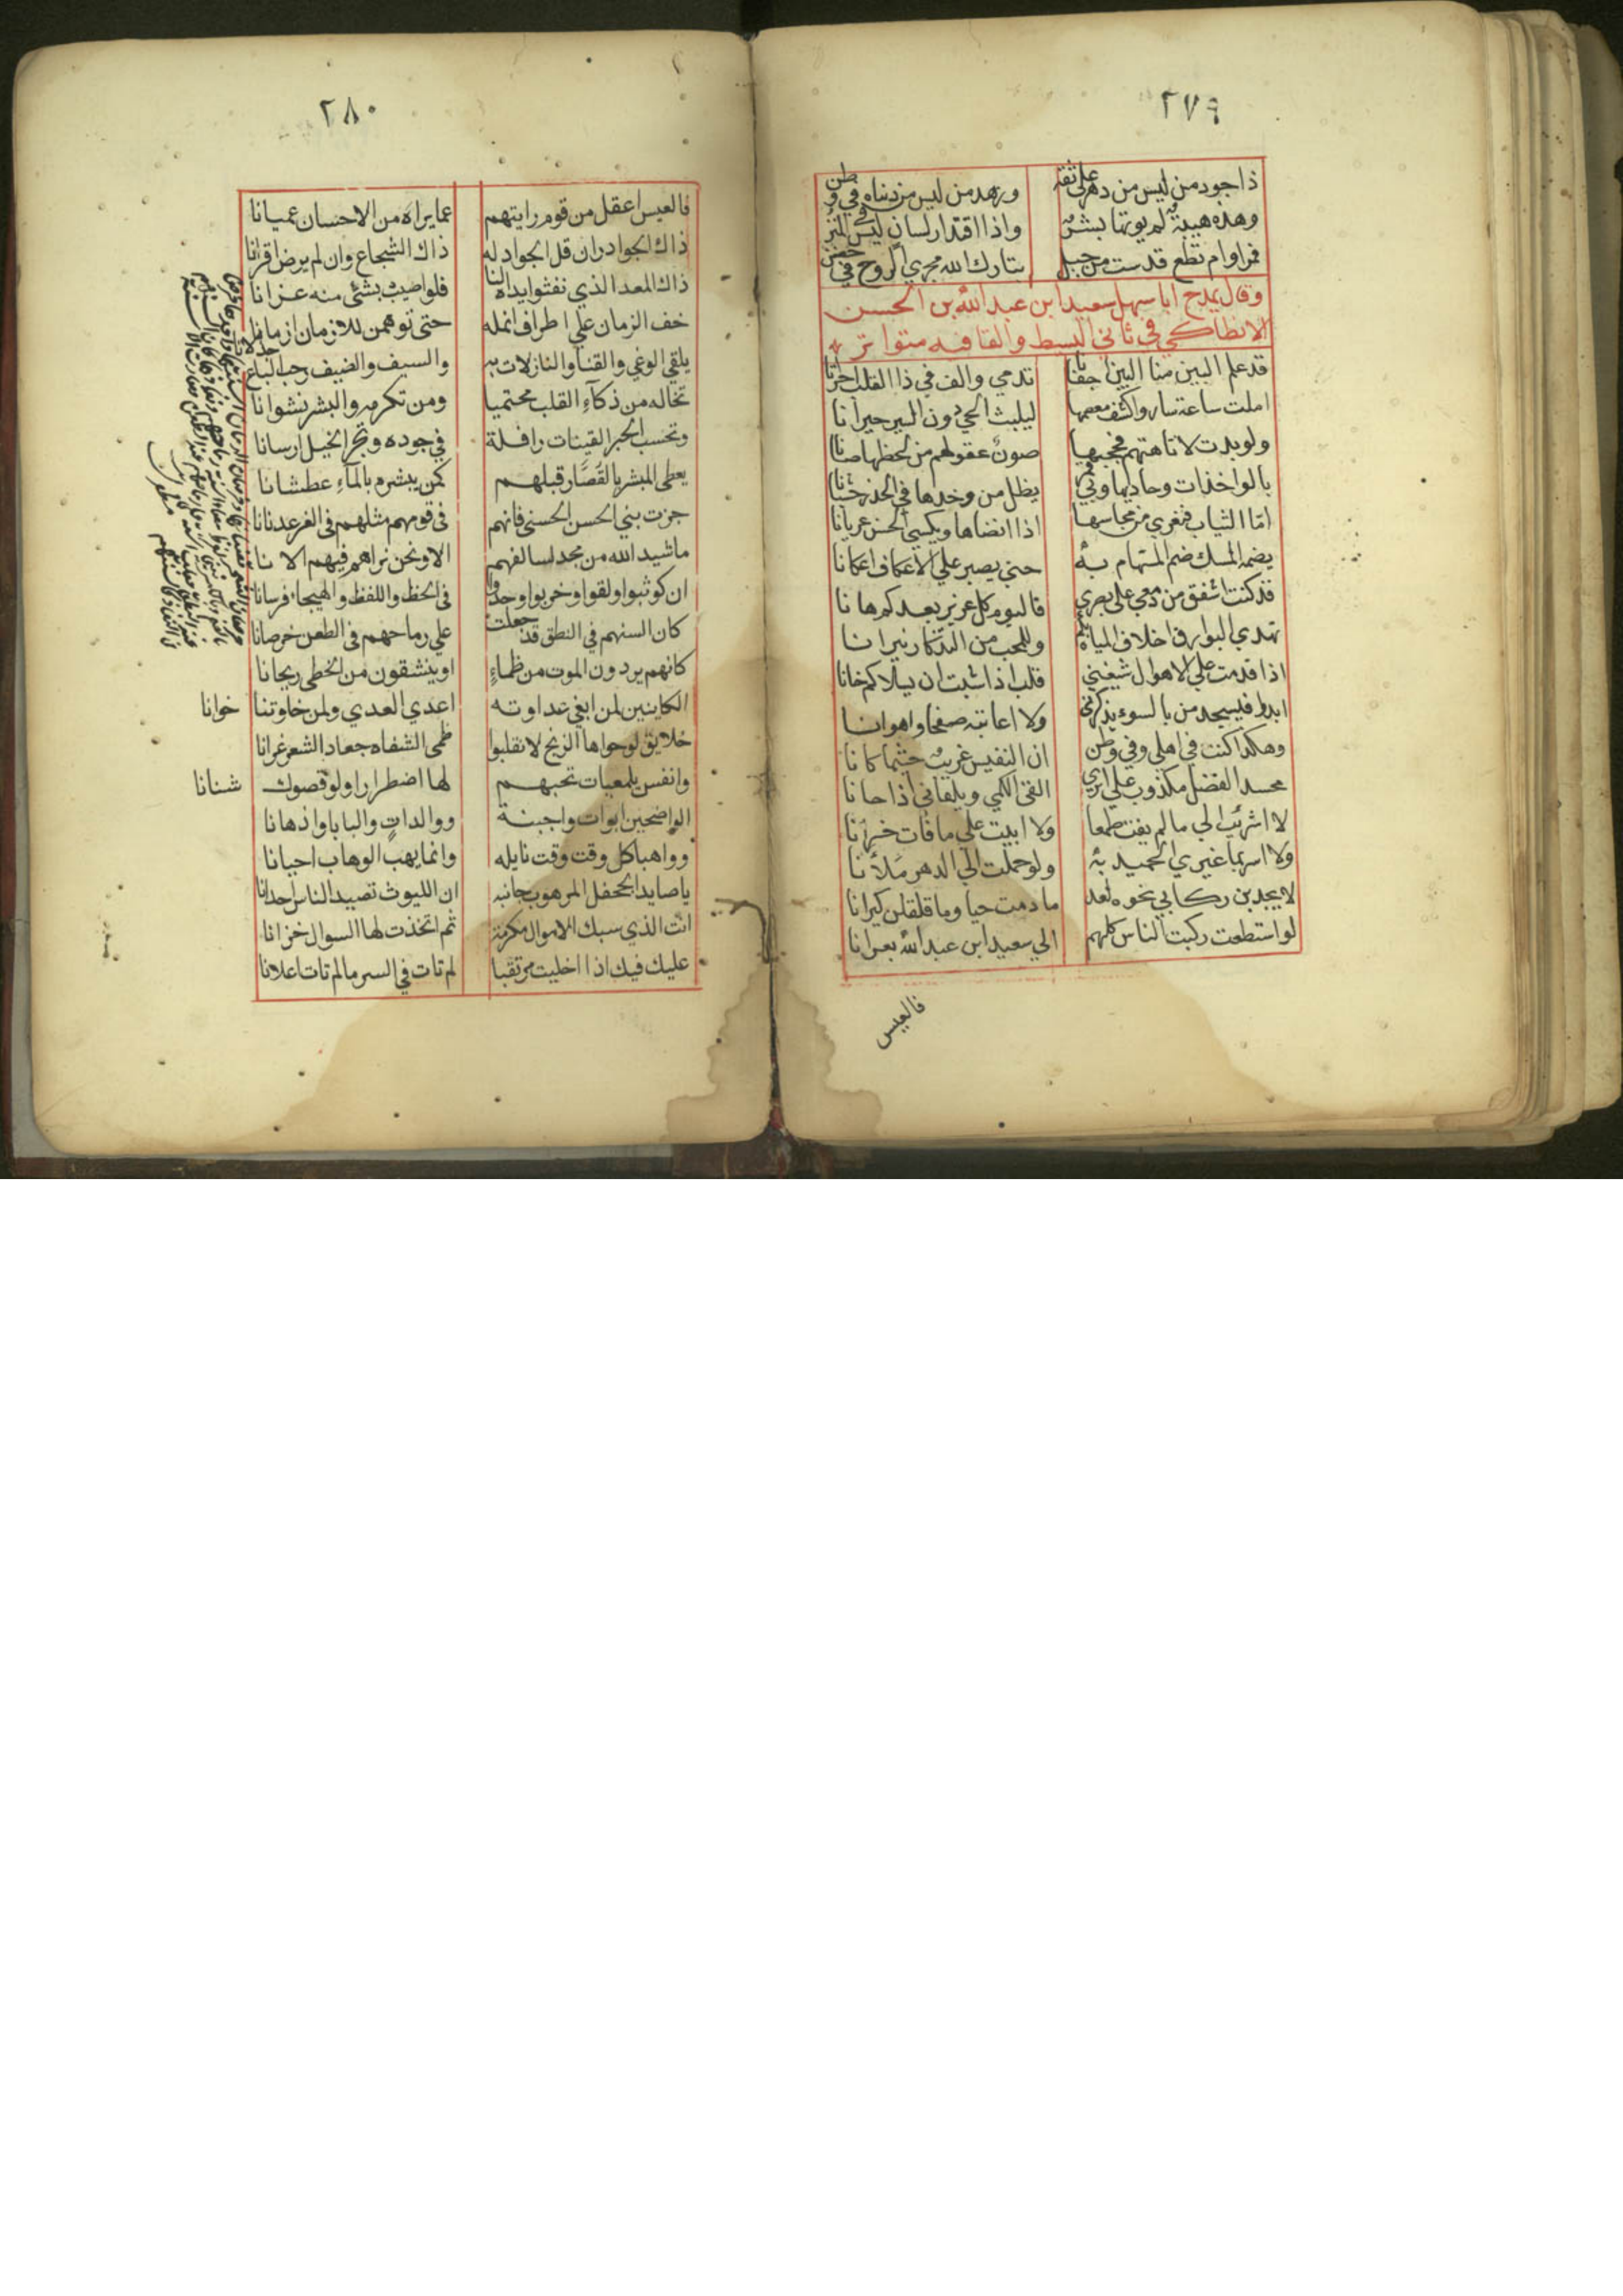 ٢٧٩
ذا جود من ليس من دهر علي ثقه وزهد من ليس من دنياه في وطن
وهذه هيبة لم يوتها بشر وذا اقتدار لسان ليس في المنن
فمر واوم تطع قدست من جبل تبارك الله مجري الروح في حضن
وقال يمدح ابا سهل سعيد ابن عبد الله بن الحسن
الانطاكي في ثاني البسيط والقافيه متواتر
قد علم البين منا البين اجفانا تدمي والف في ذا القلب احزانا
املت ساعة ساروا كشف معصمها ليلبث الحي دون السير حيرانا
ولو بدت لاتاهتهم فحجبها صون عقولهم من لحظها صانا
بالواخذات وحاديها وبي قمر يظل من وخدها في الخدر خشيانا
امّا الثياب فتعري من محاسنها اذا انضاها ويكسي الحسن عريانا
يضمه المسك ضم المستهام به حتي يصير علي الاعكاف اعكانا
قد كنت اشفق من دمعي علي بصري فاليوم كل عزيز بعدكم هانا
تهدي البوارق اخلاف المياه لكم وللمحب من التذكار نيرانا
اذا قدمت علي الاهوال شيعني قلب اذا شيت ان يسلاكم خانا
ابدو فيسجد من بالسوء يذكرني ولا اعاتبه صفحا واهوانا
وهكذا كنت في اهلي وفي وطن ان النفيس غريب حيثما كانا
محسد الفضل مكذوب علي اثري القي الكمي ويلقاني اذا حانا
لا اشرئب الي ما لم يفت طمعا ولا ابيت علي ما فات خسرانا
ولا اسر بما غيري الحميد به ولو حملت الي الدهر ملأنا
لا يجدبن ركابي نحوه احد ما دمت حيا وما قلقلن كيرانا
لو استطعت ركبت الناس كلهم الي سعيد ابن عبد الله بعرانا
فالعيس
٢٨٠
فالعيس اعقل من قوم رايتهم عما يراه من الاحسان عميانا
ذاك الجواد وان قل الجواد له ذاك الشجاع وان لم يرض اقرانا
ذاك المعد الذي نقثوا يداه لنا فلو اصيب بشئ منه عزانا
خف الزمان علي اطراف انمله حتى توهمن للازمان ازمانا
يلقي الوغي والقنا والنازلات به والسيف والضيف رحب الباع جذلانا
تخاله من ذكآء القلب محتميا ومن تكرمه والبشر نشوانا
وتحسب الحبر القينات رافلة في جوده وتجر الخيل ارسانا
يعطي المبشر بالقصّار قبلهم كمن يبشره بالمآء عطشانا
جزت بني الحسن الحسني فانهم في قومهم مثلهم في الغر عدنانا
ما شيد الله من مجد لسالفهم الا ونحن نراهم فيهم الانا
ان كوتبوا او لقوا او حربوا وجدوا في الحظ واللفظ والهيجاء فرسانا
كان السنهم في النطق قد جعلت علي رماحهم في الطعن خرصانا
كانهم يردون الموت من ظماء او ينشقون من الخطي ريحانا
الكاينين لمن ابغي عداوته اعدي العدي ولمن خاوتنا خوانا
خلايق لو حواها الزنج لانقلبوا ظمى الشفاه جعاد الشعر غرانا
وانفس يلمعيات تحبهم لها اضطرارا ولو قصوك شنانا
الواضحين ابوات واجبنة ووالدات والبابا واذهانا
وواهبا كل وقت وقت نايله وانما يهب الوهاب احيانا
يا صايد الجحفل المرهوب جانبه ان الليوث تصيد الناس احدانا
انت الذي سبك الاموال مكرمة ثم اتخذت لها السوال خزانا
عليك فيك اذا اخليت مرتقبا لم تات في السر ما لم تات اعلانا